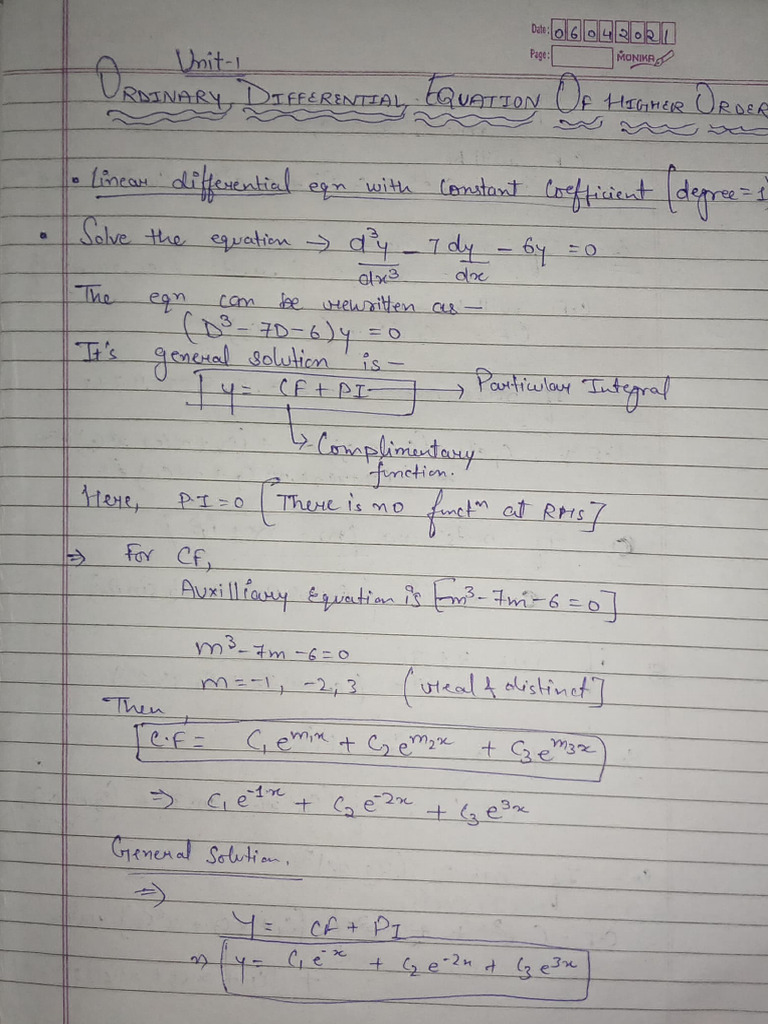 Date: 06042021
Page: MONIKA
Unit-1
ORDINARY DIFFERENTIAL EQUATION OF HIGHER ORDER
• Linear differential eqn with constant coefficient [degree=1]
• Solve the equation → d³y/dx³ - 7dy/dx - 6y = 0
The eqn can be rewritten as -
(D³ - 7D - 6)y = 0
It's general solution is -
y = CF + PI → Particular Integral
↳ Complimentary
function.
Here, P.I = 0 [There is no functⁿ at RHS]
⇒ For CF,
Auxilliary Equation is [m³ - 7m - 6 = 0]
m³ - 7m - 6 = 0
m = -1, -2, 3 (real & distinct]
Then,
C.F = C₁e^m₁x + C₂e^m₂x + C₃e^m₃x
⇒ C₁e^-1x + C₂e^-2x + C₃e^3x
General Solution.
⇒
y = CF + PI
⇒ y = C₁e^-x + C₂e^-2x + C₃e^3x